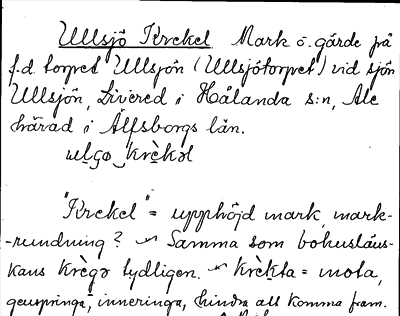 Ullsjö Krekel Mark o. gärde på
f.d. torpet Ullsjön (Ullsjötorpet) vid sjön
Ullsjön, Livered i Hålanda s:n, Ale
härad i Älfsborgs län.
krèkəl
"Krekel" = upphöjd mark, mark-
-rundning? Samma som bohusläns-
kans krègə tydligen. Krèkta = mota,
genspringa, inneringa, hindra att komma fram.